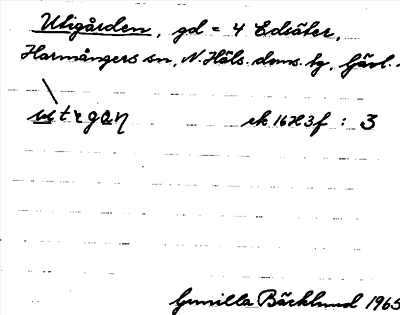 Utigården, gd = 4 Edsäter,
Harmångers sn, N. Häls. doms. tg, Gävl.
utẹgan̥
ek 16H3f : 3
Gunilla Bäcklund 1965